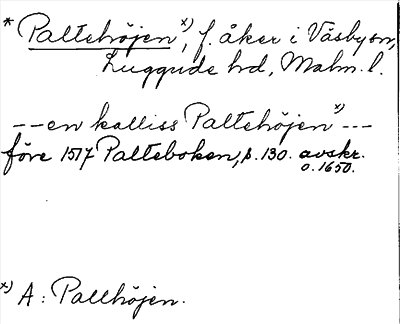 * Paltehöjen x), f. åker i Väsby sn,
Luggude hd, Malm. l.
--en kalliss Paltehöjen x)---
före 1517 Palteboken, s. 130. avskr.
o. 1650.
x) A: Pallhöjen.